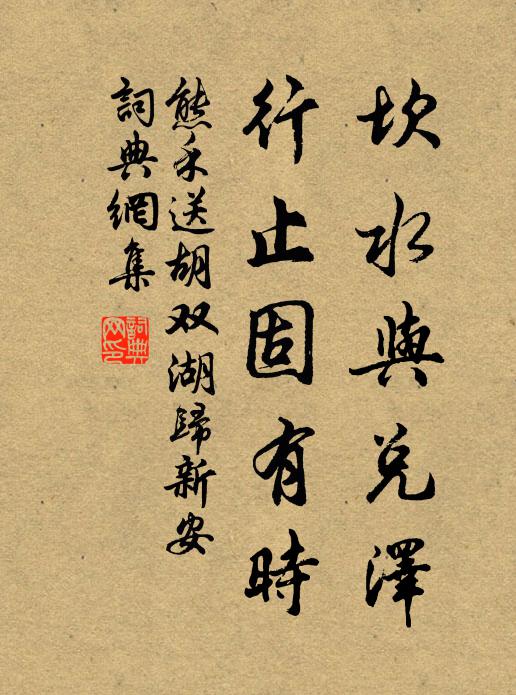 坎水與兑澤
行止固有時
熊禾送胡双湖歸新安
詞典網集
詞典网印